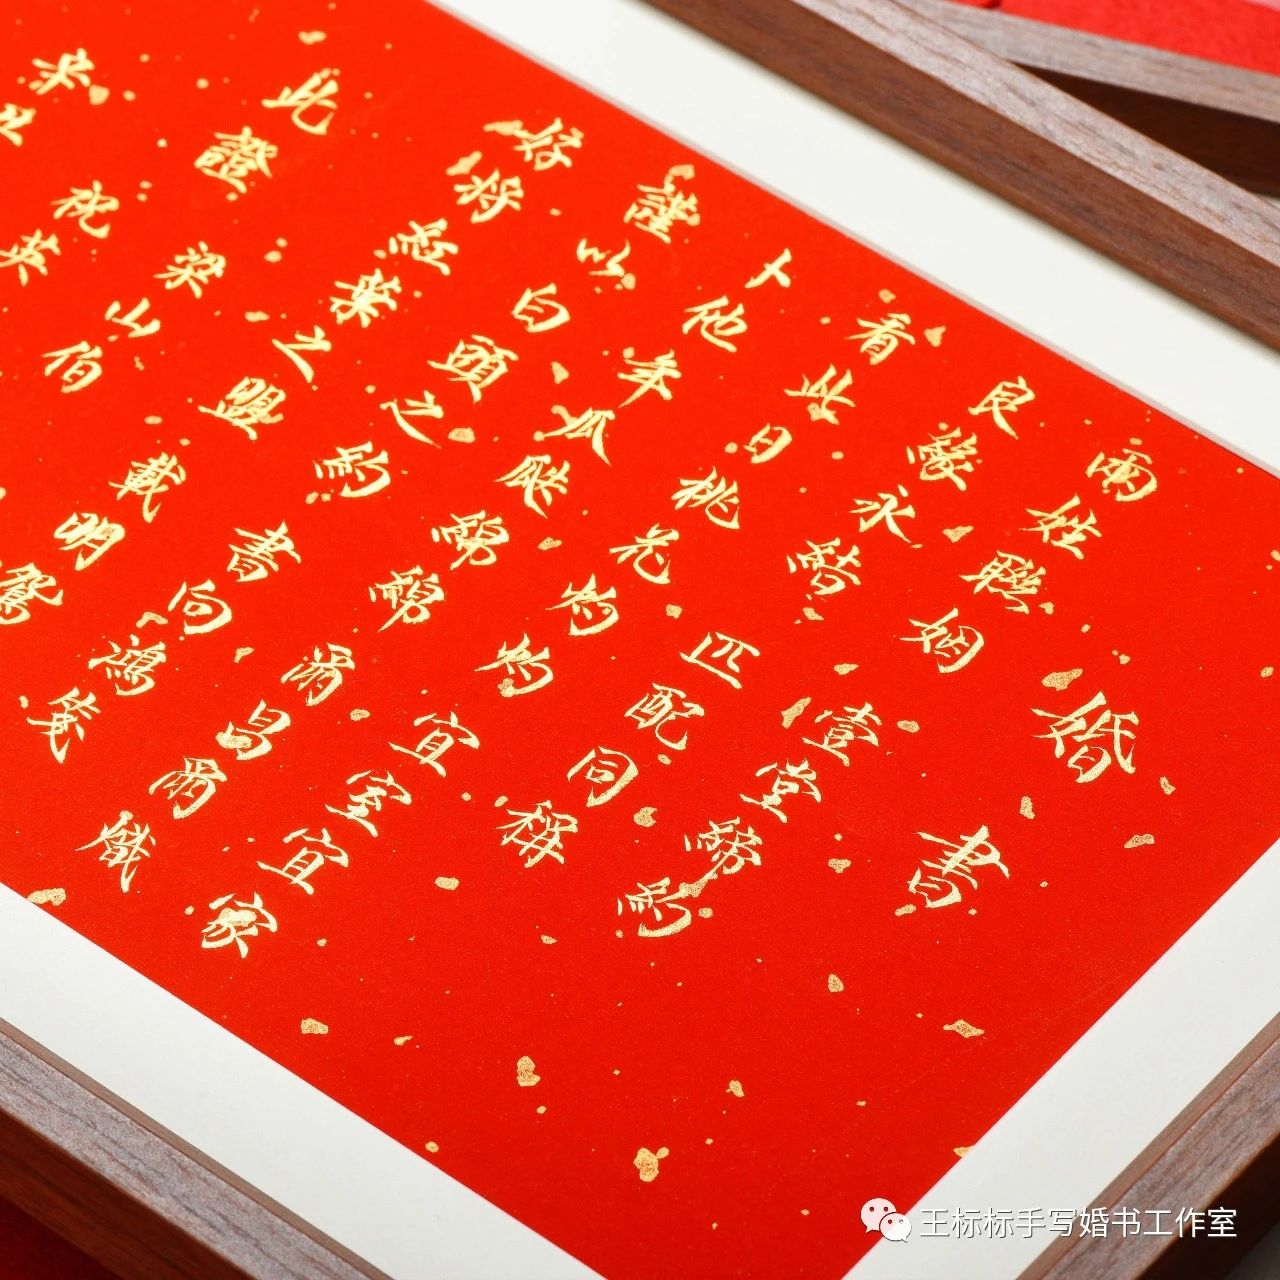 婚書
兩姓聯姻 壹堂締約
良緣永結 匹配同稱
看此日桃花灼灼 宜室宜家
卜他年瓜瓞綿綿 爾昌爾熾
謹以白頭之約 書向鴻箋
好將紅葉之盟 載明鴛
此證
梁山伯
祝英
辛丑
王标标手写婚书工作室